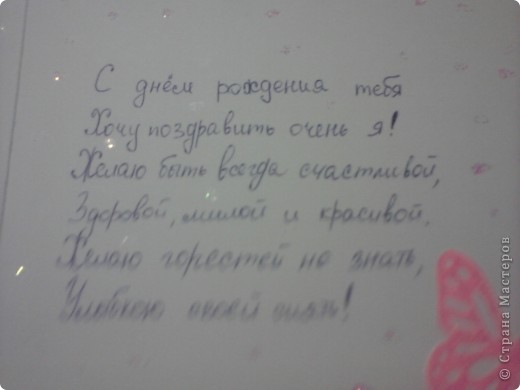 С днём рождения тебя
Хочу поздравить очень я!
Желаю быть всегда счастливой,
Здоровой, милой и красивой.
Желаю горестей не знать,
Улыбкою своей сиять!
© Страна Мастеров